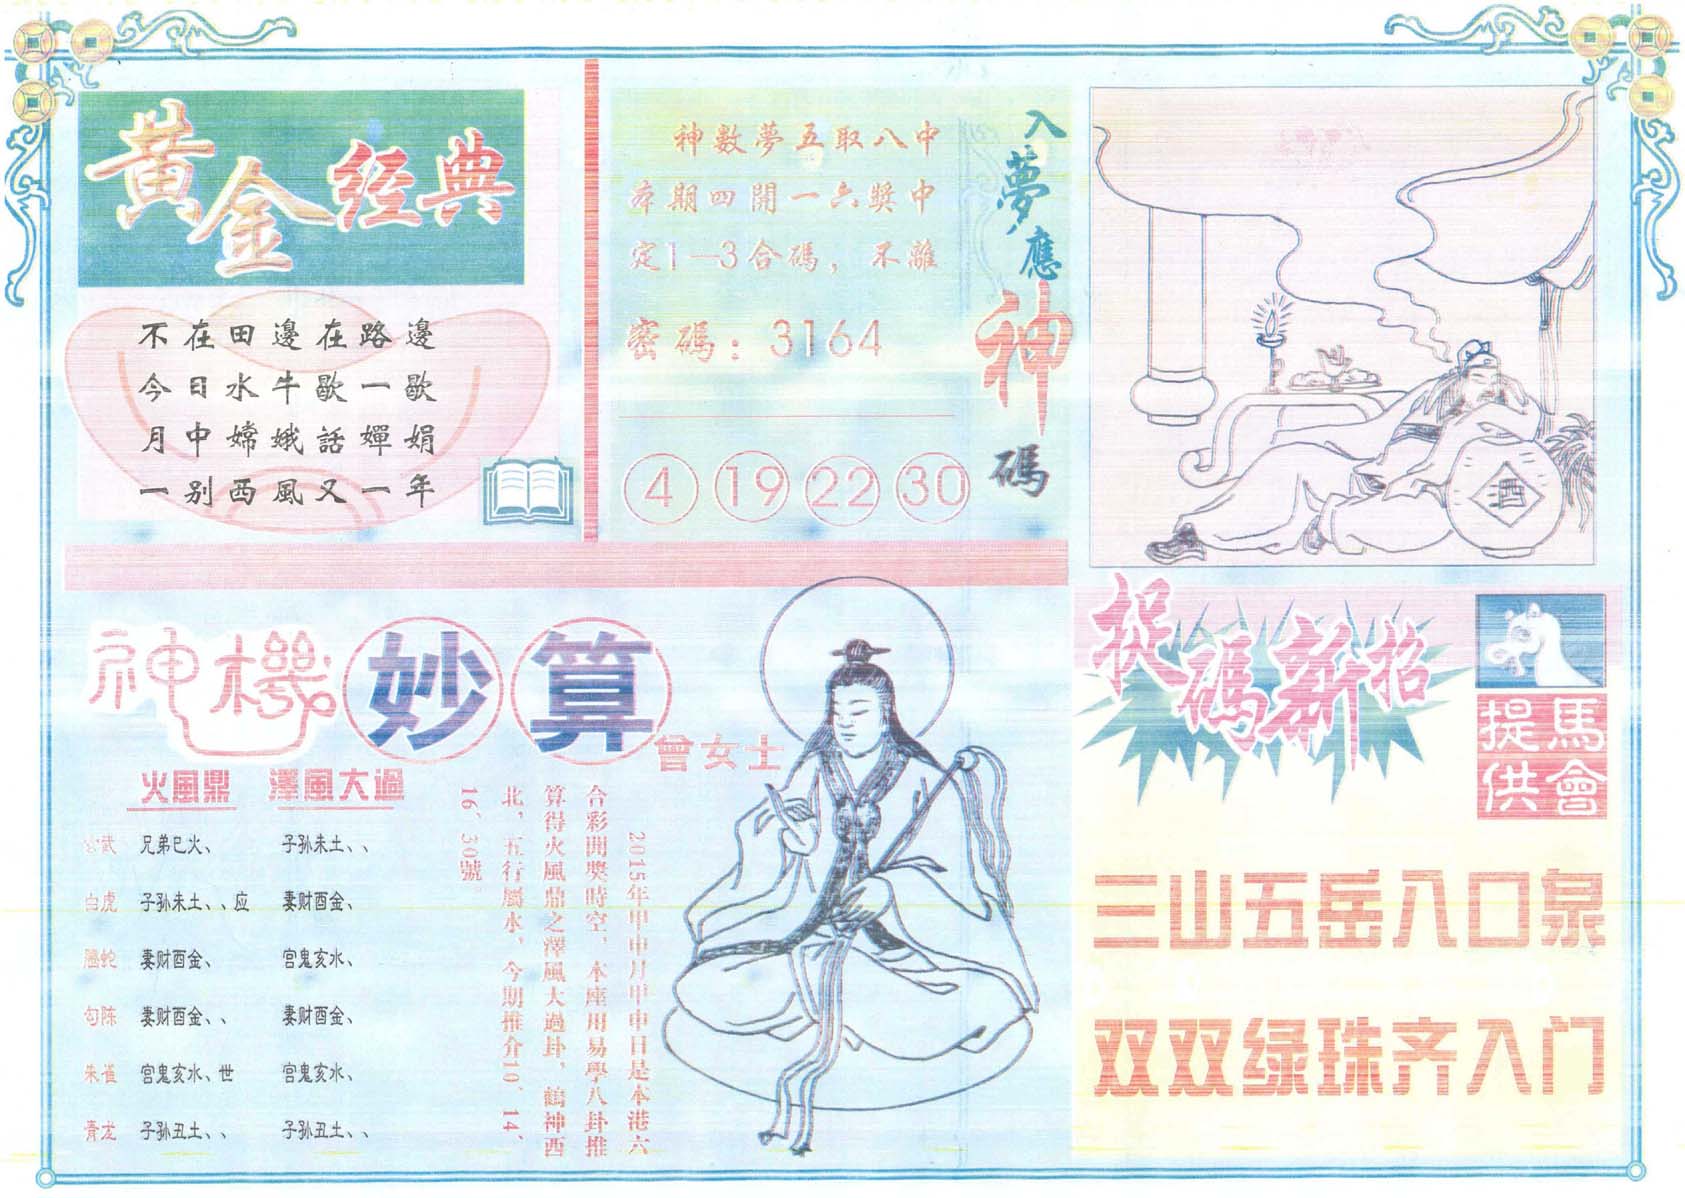 黃金經典
不在田邊在路邊
今日水牛歇一歇
月中嫦娥話嬋娟
一别西風又一年
神數夢五取八中
本期四開一六獎中
定1—3合碼，不離
密碼：3164
4 19 22 30
入夢應神碼
酒
神機妙算
曾女士
火風鼎 澤風大過
玄武 兄弟巳火、 子孙未土、、
白虎 子孙未土、、应 妻财酉金、
螣蛇 妻财酉金、 官鬼亥水、
勾陈 妻财酉金、、 妻财酉金、
朱雀 官鬼亥水、世 官鬼亥水、
青龙 子孙丑土、、 子孙丑土、、
2015年甲申月甲申日是本港六
合彩開獎時空，本座用易學八卦推
算得火風鼎之澤風大過卦，鶴神西
北，五行屬水，今期推介10、14、
16、30號。
捉碼新招
馬會
提供
三山五岳入口泉
双双绿珠齐入门